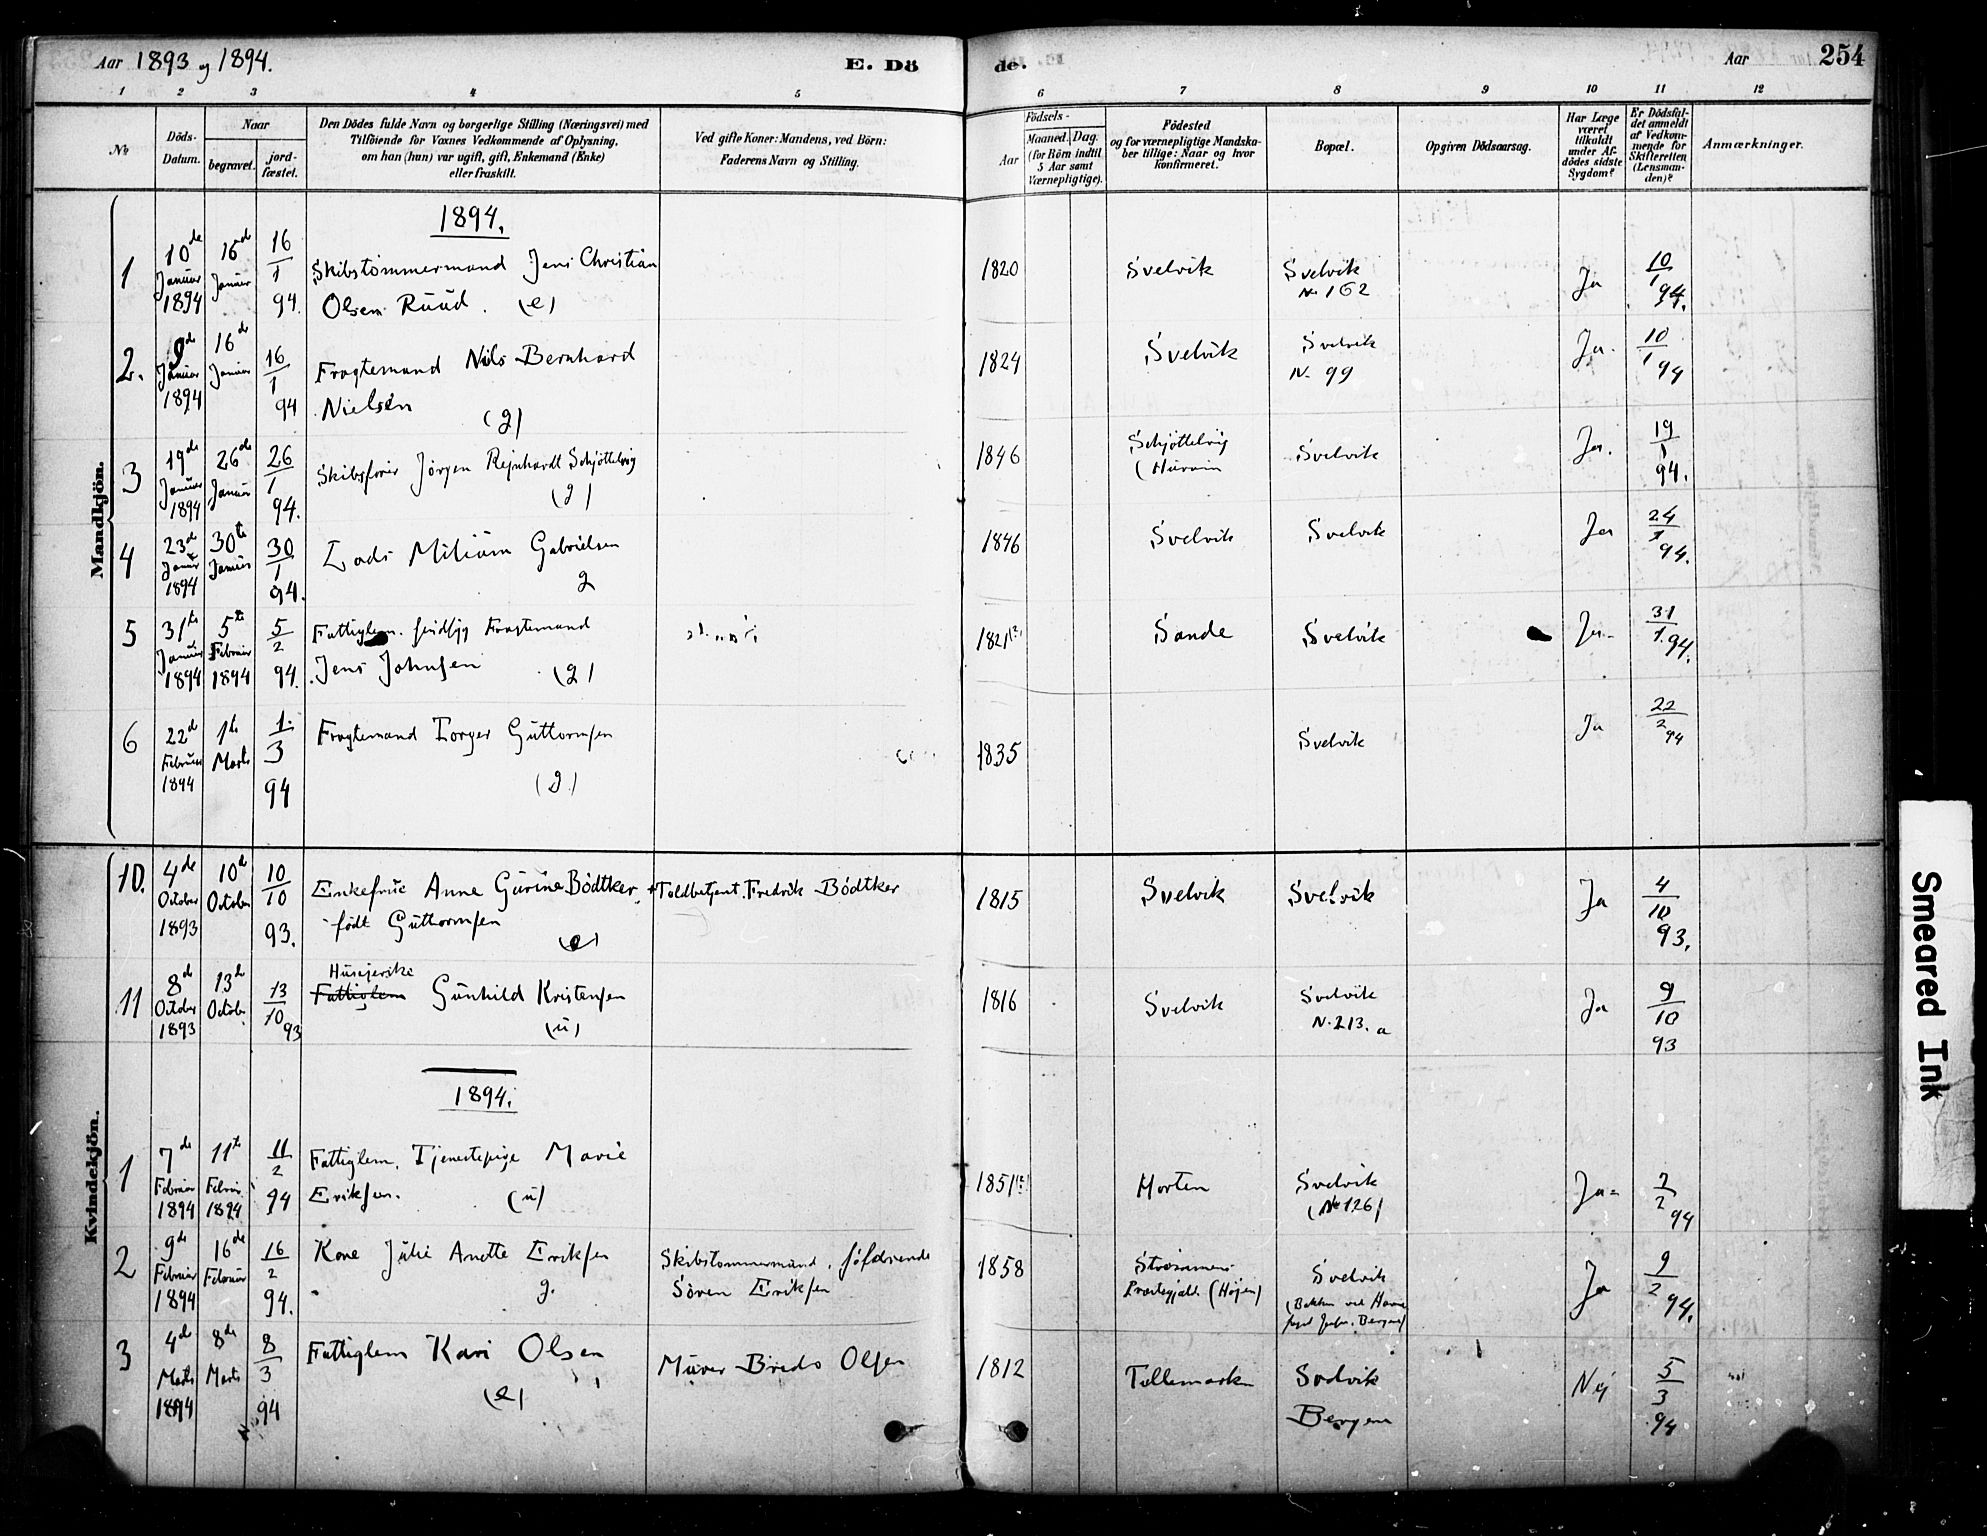 Aar 1893 og 1894.
E. Dö
de.
Aar
254
1 2 3 4 5 6 7 8 9 10 11 12
No
Döds-
Datum.
Naar
begravet.
jord-
fæstet.
Den Dödes fulde Navn og borgerlige Stilling (Næringsvei) med
Tilföiende for Voxnes Vedkommende af Oplysning,
om han (hun) var ugift, gift, Enkemand (Enke)
eller fraskilt.
Ved gifte Koner: Mandens, ved Börn:
Faderens Navn og Stilling.
Födsels-
Aar
Maaned. Dag.
(for Börn indtil
5 Aar samt
Værnepligtige).
Födested
og for værnepligtige Mandska-
ber tillige: Naar og hvor
konfirmeret.
Bopæl.
Opgiven Dödsaarsag.
Har Læge
været
tilkaldt
under Af-
dödes sidste
Sygdom?
Er Dödsfal-
det anmeldt
af Vedkom-
mende for
Skifteretten
(Lensman-
den)?
Anmærkninger.
Mandkjön.
1894.
1 10de Januar 1894 16de Januar 16/1 94. Skibstömmermand Jens Christian
Olsen Ruud. (e) 1820 Svelvik Svelvik No 162 Ja 10/1 94.
2. 9de Januar 1894 16de Januar 16/1 94 Fragtemand Nils Bernhard
Nielsen (g) 1824 Svelvik Svelvik N. 99 Ja. 10/1 94
3 19de Januar 1894 26de Januar 26/1 94. Skibsförer Jörgen Rejnhardt Schjöttelvig
(g) 1846 Schjöttelvig (Hurum Svelvik Ja. 19/1 94.
4 23de Januar 1894 30te Januar 30/1 94. Lods Gabrielsen
g 1846 Svelvik Svelvik Ja 24/1 94.
5 31te Januar 1894 5te Februar 1894 5/2 94. Fattiglem. Fragtemand
Jens Johnsen (g) 1821 Sande Svelvik Ja- 31/1 94.
6 22de Februar 1894 1te Marts 1/3 94 Fragtemand Torger Guttormsen
(g.) 1835 Svelvik Ja 22/2 94
Kvindekjön.
10. 4de October 1893 10de October 10/10 93. Enkefrue Anne Gurine Bödtker, Toldbetjent. Fredrik Bödtker
födt Guttormsen (e) 1815 Svelvik Svelvik Ja 4/10 93.
11 8de October 1893 13de October 13/10 93 Fattiglem Gunhild Kristensen
(u) 1816 Svelvik Svelvik N. 213. a Ja 9/10 93
1894.
1 7de Februar 1894 11te Februar 1894 11/2 94 Fattiglem. Tjenestepige Marie
Eriksen. (u) 1851 Horten Svelvik (No 126) Ja- 2/2 94
2 9de Februar 1894 16de Februar 16/2 94. Kone Julie Anette Eriksen
g. Skibstömmermand.
Sören Eriksen 1858 Strömmens Præstegjæld. (Höjen) Svelvik Ja 9/2 94.
3 4de Marts 1894 8de Marts 8/3 94 Fattiglem Kari Olsen
(e) Murer Olsen 1812 Tellemarken Svelvik Bergen Nej 5/3 94
Smeared Ink